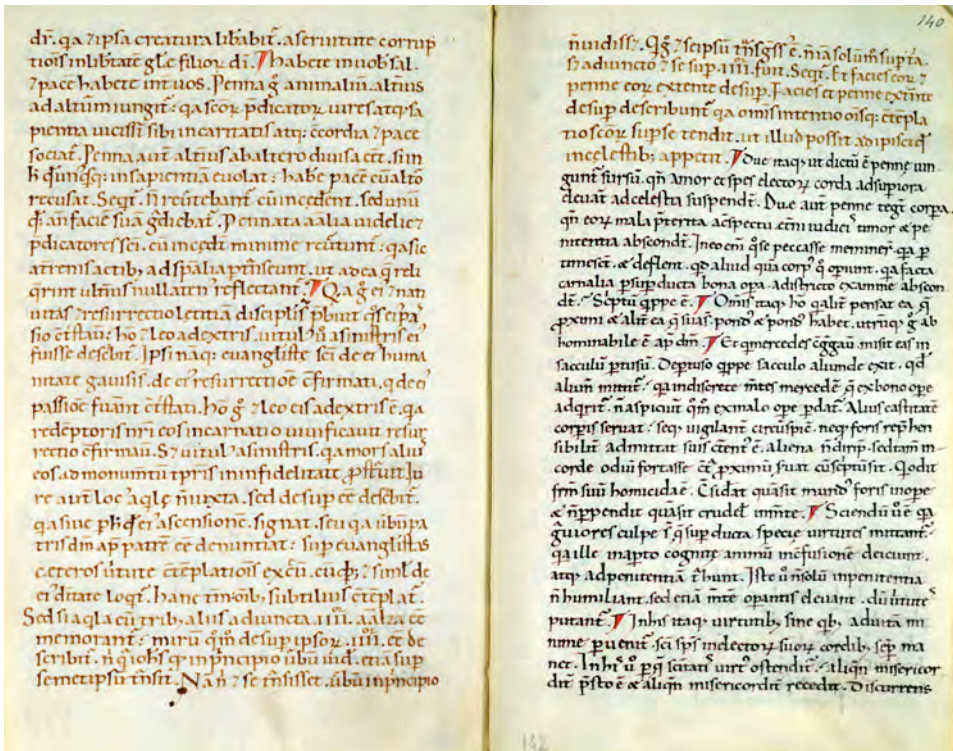 dī. qa ⁊ ipsa creatura libabit̄. a seruitute corrup
tiōis in lib̄tate gl̄e filioꝝ dī. habete in uob̄ sal.
⁊ pacē habete int̄ uos. Penna g̊ animaliū. altiꝰ
ad altiū iungit̄: qa sc̄oꝝ p̄dicatoꝝ uires atq; sa
pientia uicissī sibi in caritatis atq; c̄cordia ⁊ pace
sociat̄. Penna aut̄ altiꝰ ab altero diuisa eēt. si in
sapientiā euolat: habe pacē cū alto
recusat. Seqt̄. n̄ reūtebant̄ cū incedent. sed unū
an faciē suā g̊diebat̄. Pennata aīalia uidelic⁊
p̄dicatores sc̄i. cū incedt̄ minime reūtunt̄: qa sic
a t̄renis actib; ad sp̄alia ut ad ea q̄ reli
q̄rint ulteriꝰ nullaten reflectant̄. Qa g̊ ei ⁊ nati
uitas ⁊ resurrectio letitiā disciplis p̄buit
sio c̄tstau: hō ⁊ leo a dextris. uitulꝰ ū a sinistris ei
fuisse desēbit̄. Ipsi naq; euangliste sc̄i de eiꝰ huma
nitate gauisis. de eiꝰ resurrectiōe c̄firmati. q de eiꝰ
passiōe fuant c̄tstati. hō g̊ ⁊ leo eis a dextris ē. qa
redēptoris nr̄i eos incarnatio uiuificauit resur
rectio c̄firmau. S⁊ uitulꝰ a sinistris. qa mors aliꝰ
eos ad monumt̄ū tp̄ris in infidelitate ꝓstuit. Ju
re aut̄ locꝰ aqlę n̄ iuxta. sed desup eē desēbit̄.
qa siue ei ascensionē signat. seu qa ūbū pa
tris dm̄ ap̄ patrē eē denuntiat: sup euanglistas
ceteros ūtute c̄tēplatiōis ⁊ simł de
eiꝰ diitate loqt̄. hanc subtiliꝰ c̄tēplat̄.
Sed si aqla cū trib; aliis adiuncta .iiii. aīalia eē
memorant̄: mirū qm̄ desup ipsoꝝ .iiii. eē de
scribit̄. n̄ in p̄ncipio ūbū uid̄. etiā sup
semetipsū t̄nsit. Nā n̄ ⁊ se t̄nsisset. ūbū in p̄ncipio
140
n̄ uidiss⁊. Qg̊ ⁊ seipsū t̄nsgss ē. n̄ īa solūm sup t̄ia.
s⁊ adiuncto ⁊ se sup .iiii. fuit. Seqt̄. Et facies eoꝝ ⁊
penne eoꝝ extente desup. Facies et penne extēte
desup describunt̄ qa om̄is intentio ōisq; c̄tēpla
tio sc̄oꝝ sup se tendit. ut illud possit adipisci qd̄
in celestib; appetit. Due itaq; ut dictū ē penne iun
gunt̄ sursū. qn̄ amor et spes electoꝝ corda ad supiora
eleuāt ad celestia suspendt̄. Due aut̄ penne tegt̄ corpa.
qn̄ eoꝝ mala p̄terita a c̄spectu et̄ni iudicꝰ timor & pe
nitentia abscondt̄. In eo em̄ qd̄ se peccasse meminer̄. qa p
timesct̄. & deflent. qd aliud qua corpꝰ opiunt. qa facta
carnalia p supducta bona opa. a districto examine abscon
dt̄. Scptū qppe ē. Om̄is itaq; hō qalit̄ pensat ea q̄
ꝓximi & alit̄ ea q̄ sua s̄. pondꝰ & pondꝰ habet. utrūq; g̊ ab
hominabile ē ap̄ dm̄. Et q mercedes c̄ggau. misit eas in
sacculū ptusū. De ptuso qppe sacculo aliunde exit. qd
aliun mittit̄: qa indiscrete mt̄es mercedē q̄ ex bono ope
adqrit̄. n̄ aspiciunt qm̄ ex malo ope pdat̄. Aliꝰ castitatē
corpis seruat: seq; uigilant̄ circūspicit. neq; foris repħen
sibilit̄ admittit suis c̄tentꝰ ē. aliena n̄ diripit. sed tam̄ in
corde odiū fortasse c̄t ꝓximū fuat cū scptū sit. Qi odit
frm̄ suū homicida ē. C̄sidat̄ quasi t̄ mundꝰ foris in ope
& n̄ ppendit̄ quasi t̄ crudel̄ in mt̄e. Sciendū ū ē qa
g̊uiores culpe s̄ q̄ sup ducta specie uirtutes imitant̄:
qa ille in apto cognite animū in c̄fusione deiciunt.
atq; ad penitentiā t̄hunt. Iste ū n̄ solū in penitentia
n̄ humiliant. sed etiā mt̄e opantis eleuant. dū ūtuteˢ
putant̄. In his itaq; uirtutib; sine qb; ad uitā mi
nime pueni sc̄i sp̄s in electoꝝ suoꝝ cordib; sep ma
net. In hiꝰ ū p q̄ sc̄itatiˢ uirtꝰ ostendit̄. aliqn̄ misericor
dit̄ p̄sto ē & aliqn̄ misericordit̄ recedit. Discurrens
142